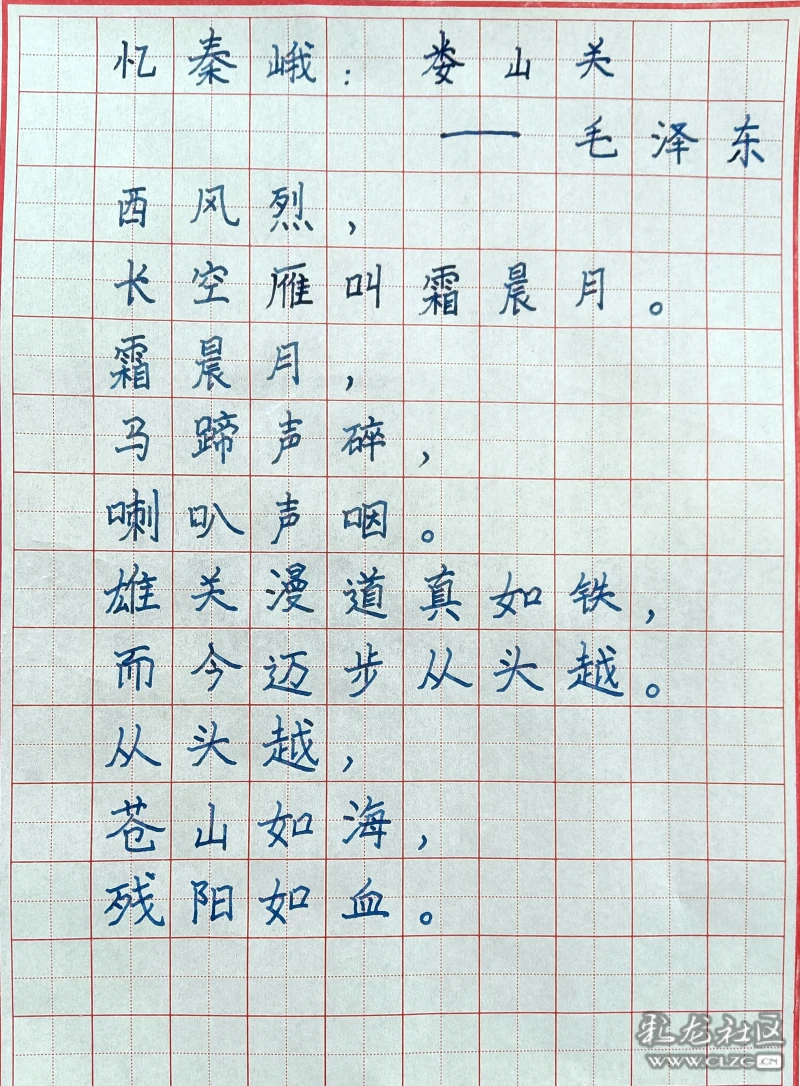 忆秦峨：娄山关
——毛泽东
西风烈，
长空雁叫霜晨月。
霜晨月，
马蹄声碎，
喇叭声咽。
雄关漫道真如铁，
而今迈步从头越。
从头越，
苍山如海，
残阳如血。
化龙社区
WWW.CLZG.CN